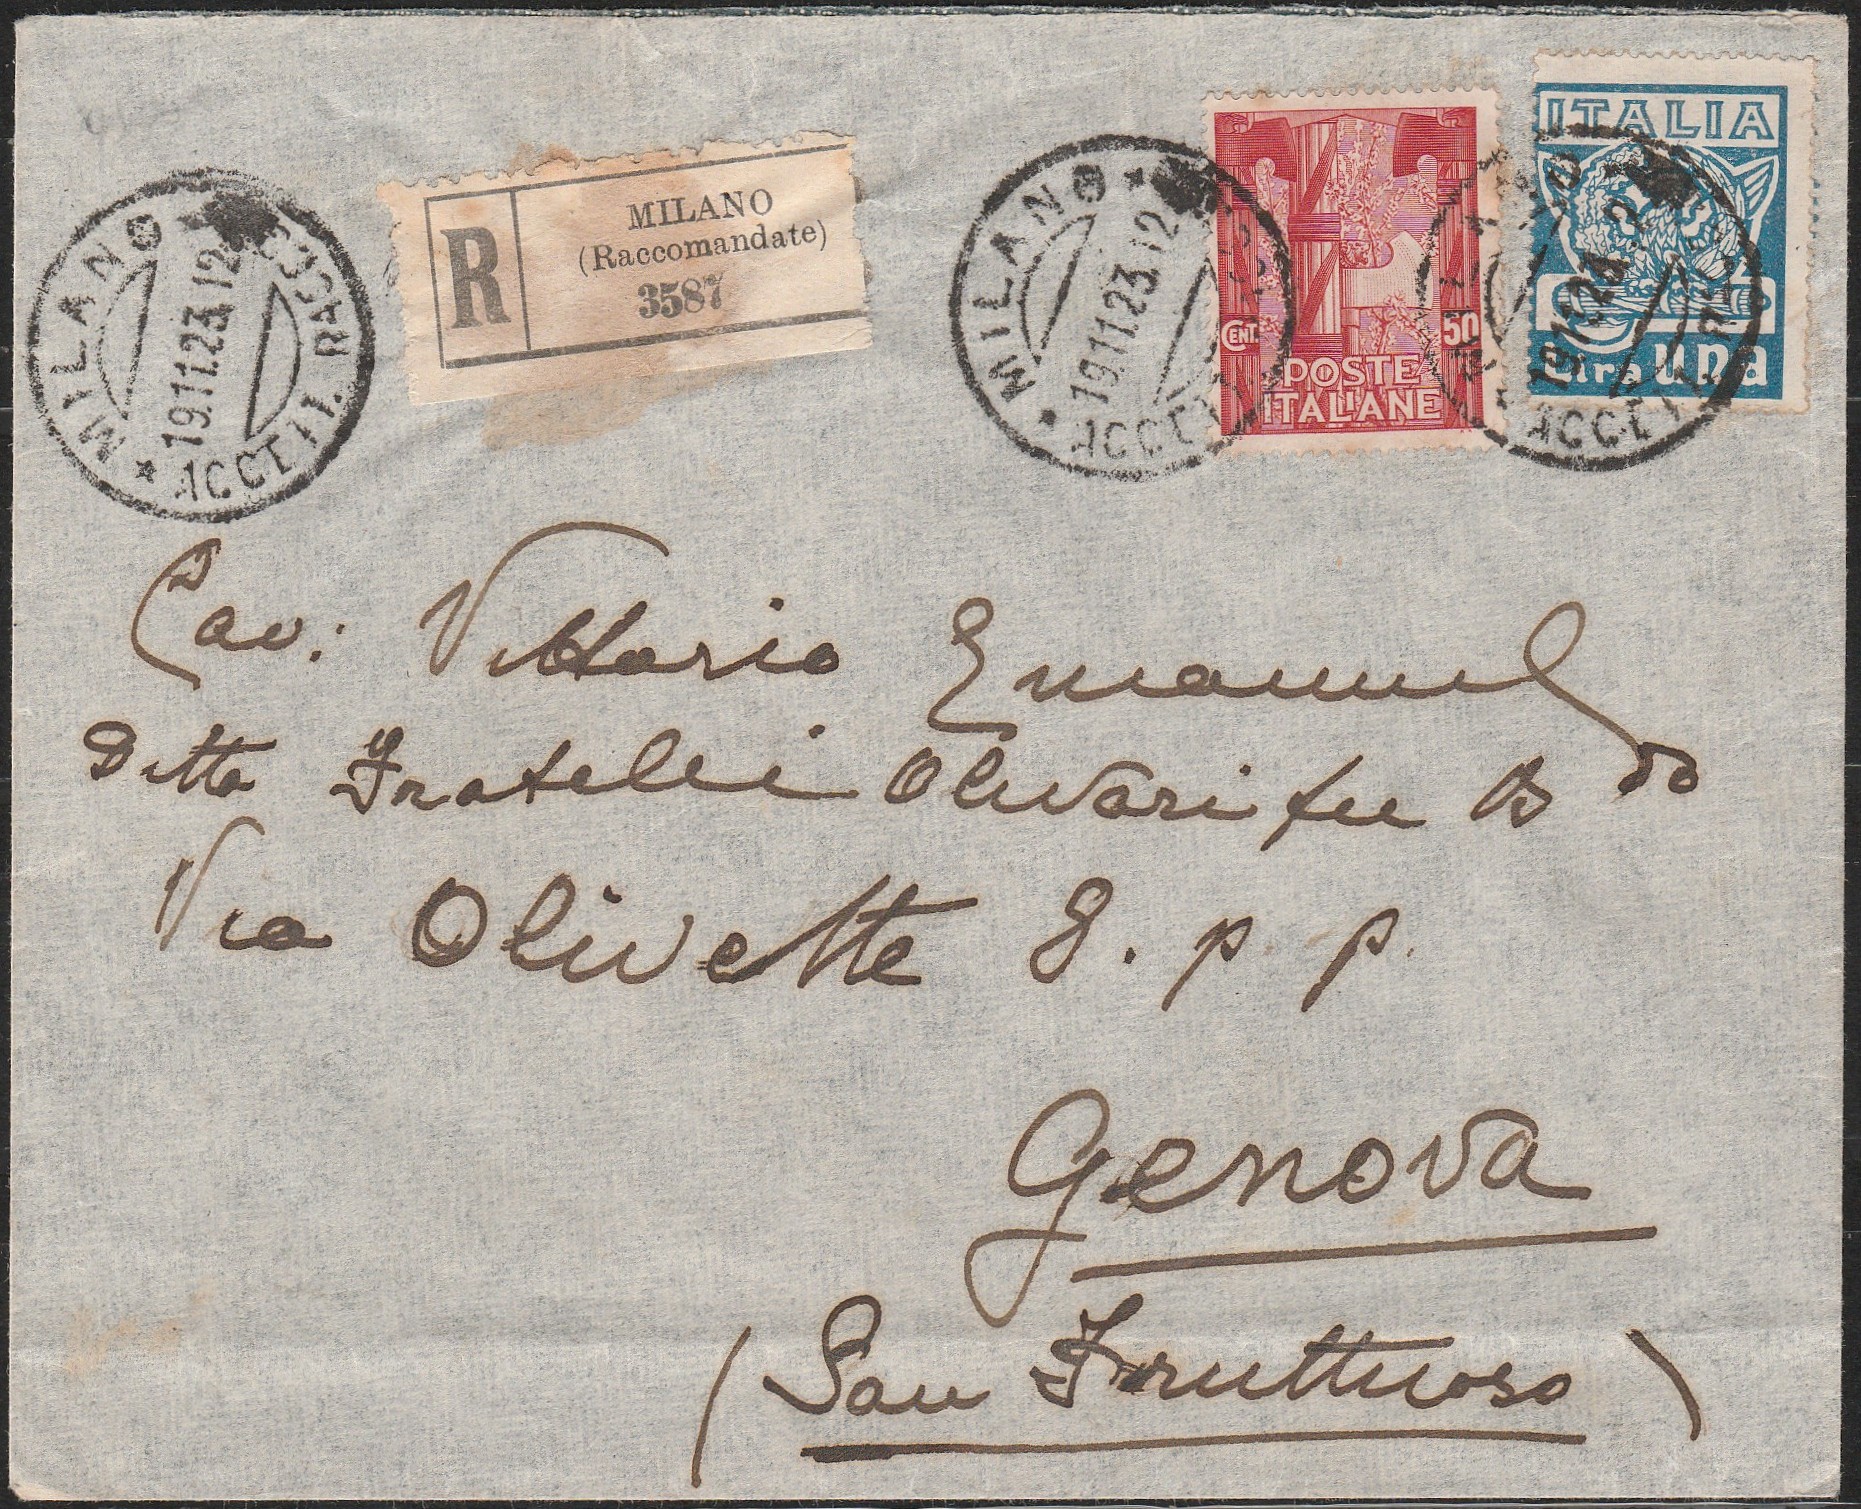 MILANO ACCETT. RACC.
19.11.23.12
R
MILANO
(Raccomandate)
3587
MILANO ACCETT.
19.11.23.12
CENT. 50
POSTE
ITALIANE
ITALIA
Lira una
ACCETT.
19.11.23.12
Cav: Vittorio Emanuel
Ditta Fratelli Olivari fu B do
Via Olivette 8. p p.
Genova
(San Fruttuoso)